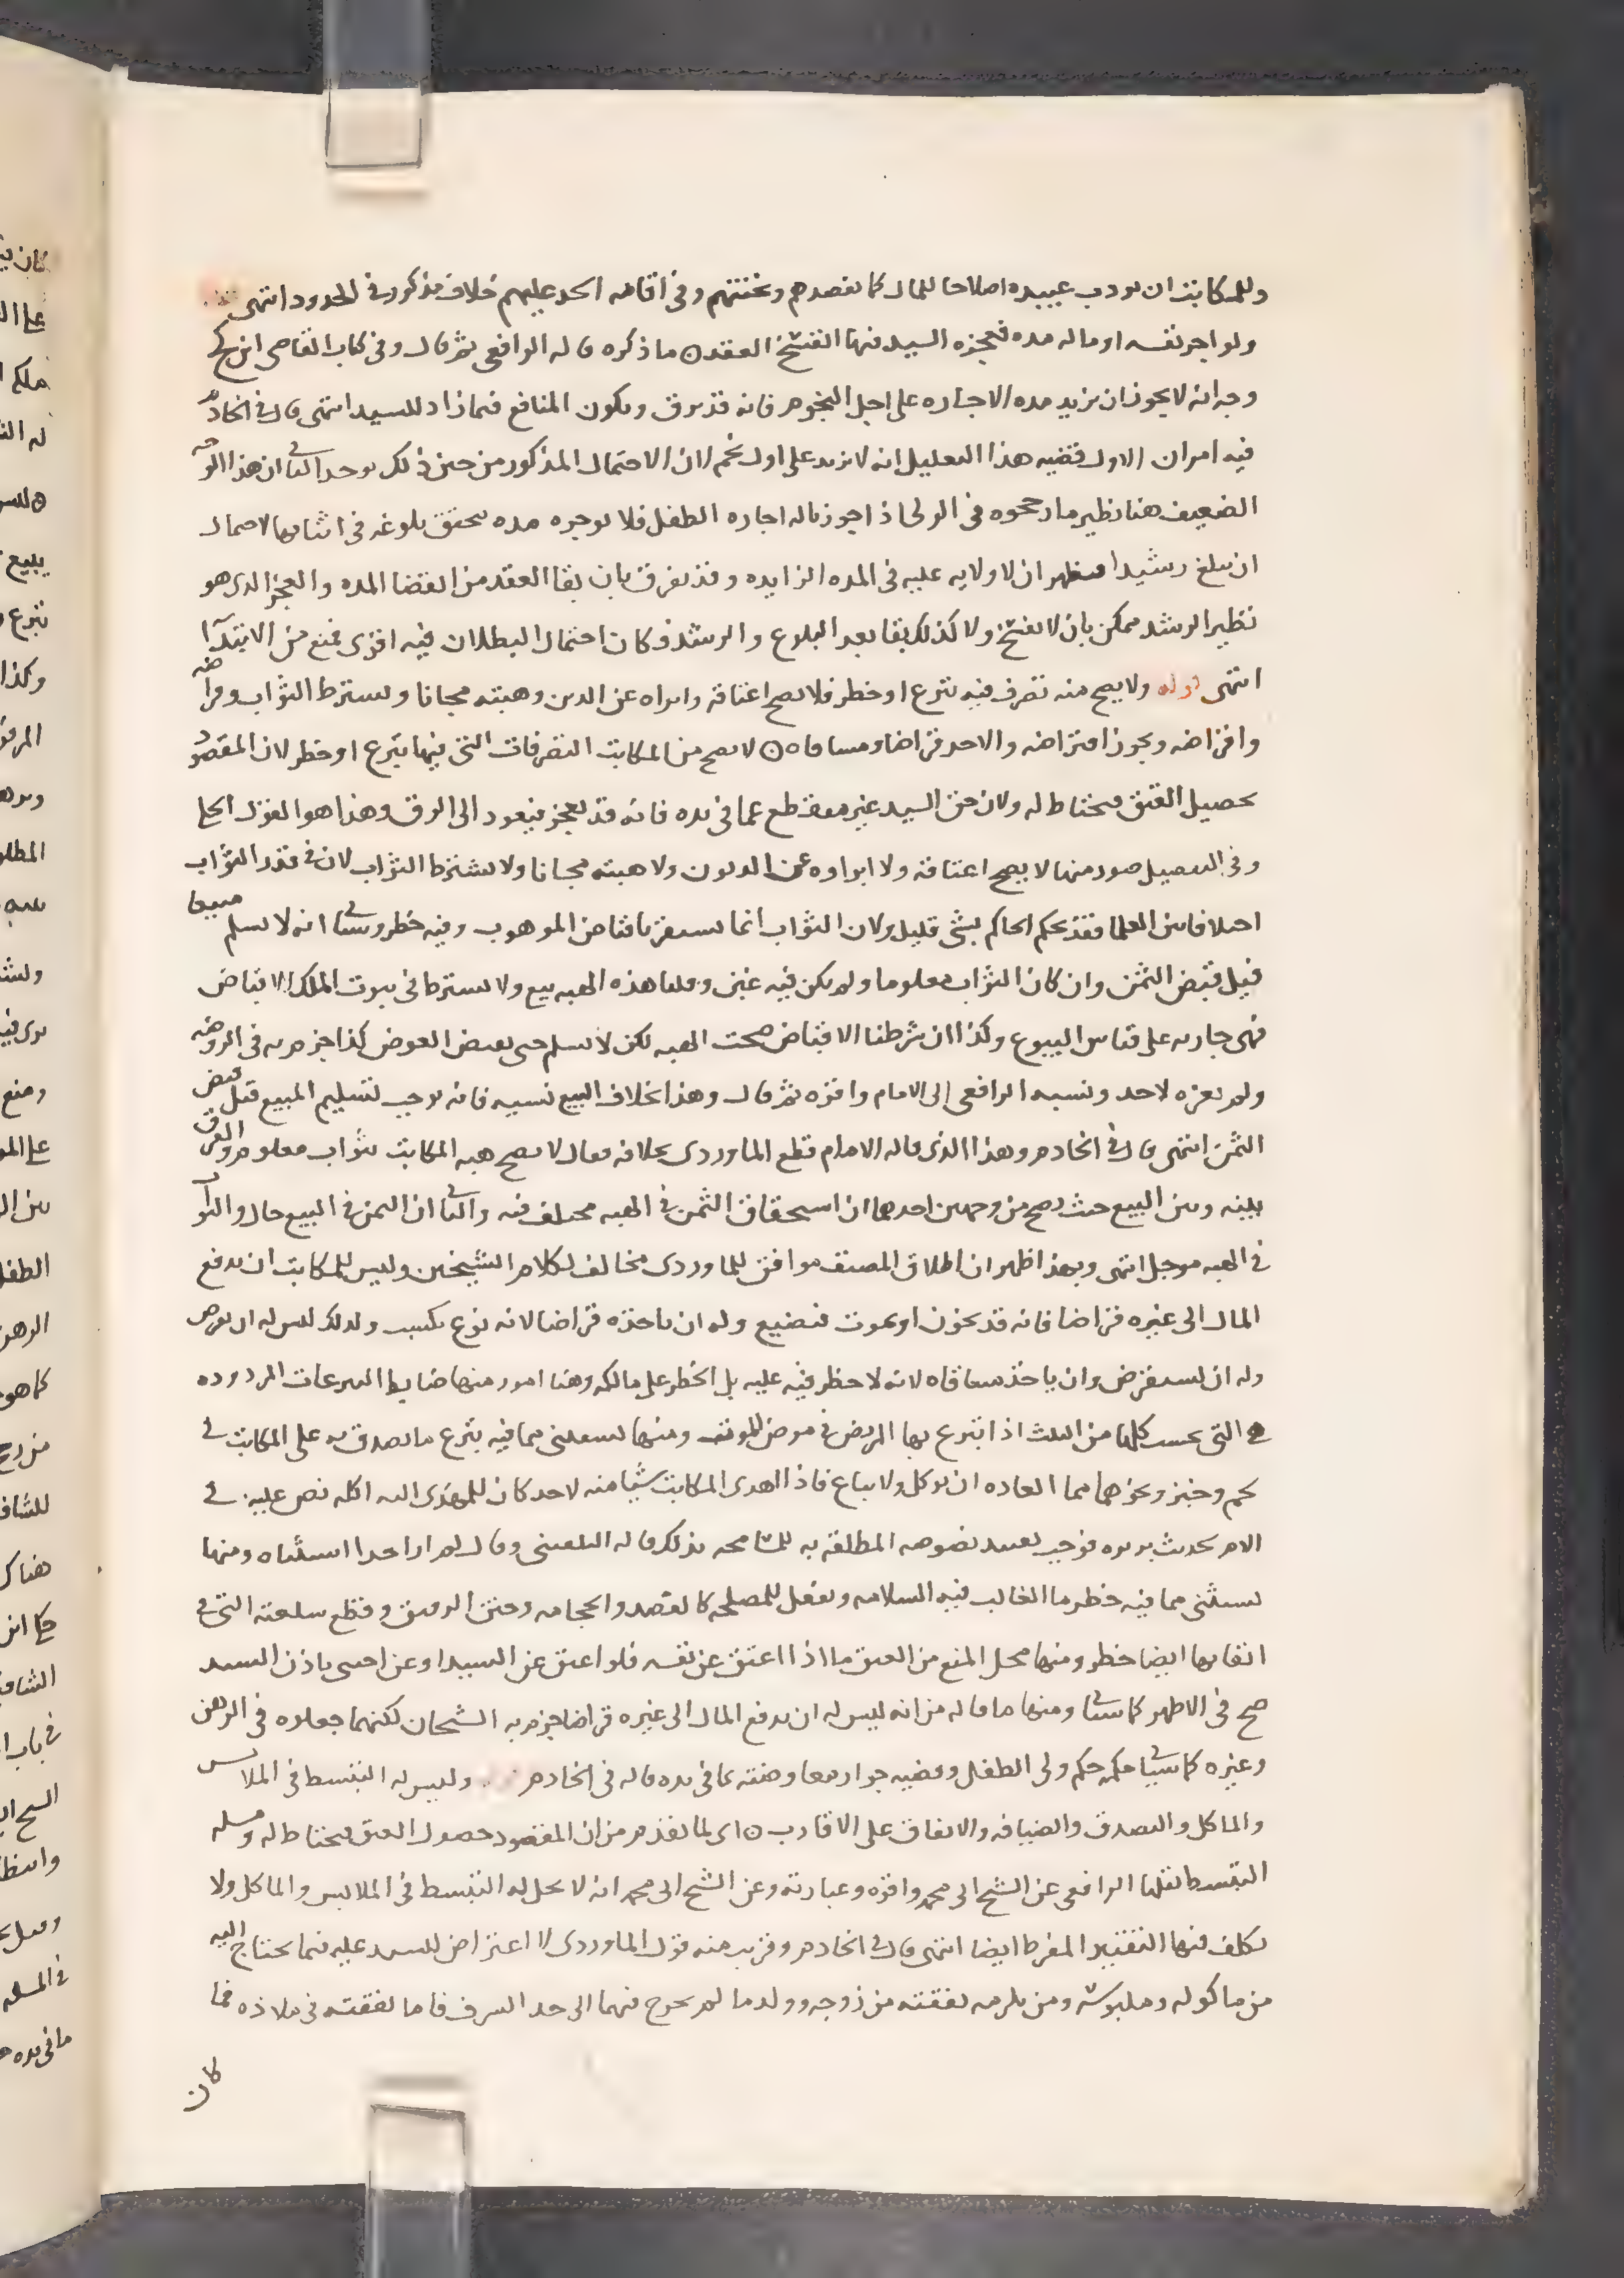 وللمكاتب ان يودب عبيده اصلاحا للمال كما يفصدهم ويختنهم وفي اقامه الحد عليهم خلاف مذكور في الحدود انتهى
ولو اجر نفسه او ماله مده فعجزه السيد فيها انفسخ العقد ن ما ذكره قاله الرافعي ثم قال وفي كتاب القاضي ابن كج
وجه انه لا يجوز ان يزيد مده الاجاره على اجل النجوم فانه قد يرق ويكون المنافع فيما زاد للسيد انتهى قال في الخادم
فيه امران الاول قضيه هذا التعليل انه لا يزيد على اول نجم لان الاحتمال المذكور من حين ذلك يوجد الثاني ان هذا الوجه
الضعيف هنا نظير ما رجحوه في الولي اذا اجر ماله اجاره الطفل فلا يوجره مده يتحقق بلوغه في اثنايها لاحتمال
ان يبلغ رشيدا فيظهر ان لا ولايه عليه في المده الزايده وقد يفرق بان بقا العقد من انقضا المده والعجز الذي هو
نظير الرشد ممكن بان لا يفسخ ولا كذلك بقا بعد البلوغ والرشد فكان احتمال البطلان فيه اقوى فمنع من الابتدآ
انتهى قوله ولا يصح منه تصرف فيه تبرع او خطر فلا يصح اعتاقه وابراه عن الدين وهبته مجانا ويشترط الثواب وقراضه
واقراضه ويجوز اقتراضه والاخذ قراضا ومساقاه ن لا يصح من المكاتب التصرفات التي فيها تبرع او خطر لان المقصود
تحصيل العتق فيحتاط له ولان حق السيد غير منقطع عما في يده فانه قد يعجز فيعود الى الرق وهذا هو القول الجلي
وفي التفصيل صور منها لا يصح اعتاقه ولا ابراوه عن الديون ولا هبته مجانا ولا يشترط الثواب لان في قدر الثواب
اختلافا بين العلما فقد يحكم الحاكم بشي قليل ولان الثواب انما يستقر باقباض الموهوب وفيه خطر وسياتي انه لا يسلم مبيعا
قبل قبض الثمن وان كان الثواب معلوما ولم يكن فيه غبن وقلنا هذه الهبه بيع ولا يشترط في ثبوت الملك الاقباض
فهي جاريه على قياس البيوع وكذا ان شرطنا الاقباض صحت الهبه لكن لا يسلم حتى يقبض العوض كذا جزم به في الروضه
ولم يعزه لاحد ونسبه الرافعي الى الامام واقره ثم قال وهذا بخلاف البيع نسيه فانه يوجب تسليم المبيع قبل قبض
الثمن انتهى قال في الخادم وهذا الذي قاله الامام قطع الماوردي بخلافه فقال لا يصح هبه المكاتب بثواب معلوم والفرق
بينه وبين البيع حيث يصح من وجهين احدهما ان استحقاق الثمن في الهبه مختلف فيه والثاني ان الثمن في البيع حال والثواب
في الهبه موجل انتهى وبهذا ظهر ان اطلاق المصنف موافق للماوردي مخالف لكلام الشيخين وليس للمكاتب ان يدفع
المال الى غيره قراضا فانه قد يخون او يموت فيضيع وله ان ياخذه قراضا لانه نوع تكسب ولذلك ليس له ان يقرض
وله ان يستقرض وان ياخذ مساقاه لانه لا خطر فيه عليه بل الخطر على مالكه وهنا امور منها ضابط التبرعات المردوده
هي التي يحسب كلها من الثلث اذا تبرع بها المريض في مرض الموت ومنها يستثنى مما فيه تبرع ما تصدق به على المكاتب في
لحم وخبز ونحوهما مما العاده ان يوكل ولا يباع فاذا اهدى المكاتب شيا منه لاحد كان للمهدى اليه اكله نص عليه في
الام بحديث بريره فوجب تقييد نصوصه المطلقه به للمسامحه بذلك قاله البلقيني وقال لم ار احدا استثناه ومنها
يستثنى مما فيه خطر ما الغالب فيه السلامه ويفعل للمصلحه كالفصد والحجامه وختن الرقيق وقطع سلعته التي في
ابقايها ايضا خطر ومنها محل المنع من العتق ما اذا اعتق عن نفسه فلو اعتق عن السيد او عن اجنبي باذن السيد
صح في الاظهر كما سياتي ومنها ما قاله من انه ليس له ان يدفع المال الى غيره قراضا جزم به الشيخان لكنهما جعلاه في الرهن
وغيره كما سياتي حكمه حكم ولي الطفل وقضيه جواز معاوضته بما في يده قاله في الخادم قوله وليس له التبسط في الملابس
والماكل والتصدق والضيافه والانفاق على الاقارب ن اي لما تقدم من ان المقصود حصول العتق فيحتاط له ومسله
التبسط نقلها الرافعي عن الشيخ ابي محمد واقره وعبارته وعن الشيخ ابي محمد انه لا يحل له التبسط في الملابس والماكل ولا
يكلف فيها التقتير المفرط ايضا انتهى قال في الخادم وقريب منه قول الماوردي لا اعتراض للسيد عليه فيما يحتاج اليه
من ماكوله وملبوسه ومن يلزمه نفقته من زوجه وولد ما لم يخرج فيهما الى حد السرف فاما نفقته في ملاذه فما
كان